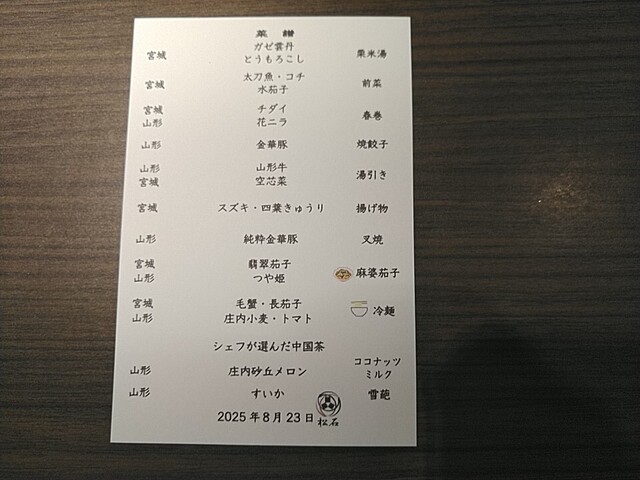 菜譜
ガゼ雲丹
宮城 とうもろこし 粟米湯
太刀魚・コチ
宮城 水茄子 前菜
宮城 チダイ 春巻
山形 花ニラ
山形 金華豚 焼餃子
山形 山形牛 湯引き
宮城 空芯菜
宮城 スズキ・四葉きゅうり 揚げ物
山形 純粋金華豚 叉焼
宮城 翡翠茄子 麻婆茄子
山形 つや姫
宮城 毛蟹・長茄子 冷麺
山形 庄内小麦・トマト
シェフが選んだ中国茶
山形 庄内砂丘メロン ココナッツ
ミルク
山形 すいか 雪葩
2025年8月23日 松石